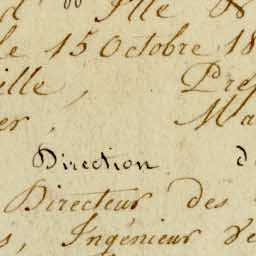 Ille
le 15 Octobre 18
ille, Pref
er, Ma
Direction d
Directeur des
s, Ingénieur de